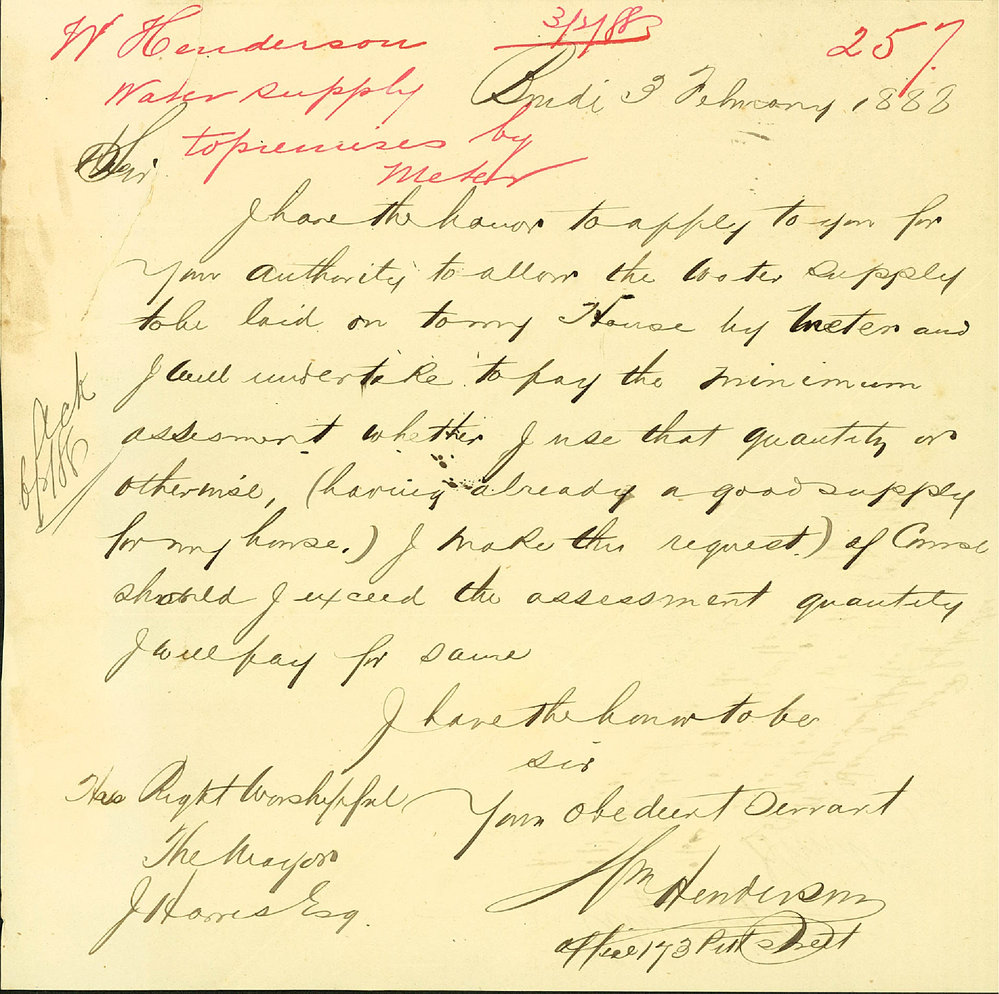 W Henderson
Water supply
to premises by
Meter
3/2/88
257
Bondi 3 February 1888
Sir
I have the honor to apply to you for
Your authority to allow the Water supply
to be laid on to my House by Meter and
I will undertake to pay the minimum
assesment whether I use that quantity or
otherwise, (having already a good supply
for my house.) I make this request.) of Course
should I exceed the assessment quantity
I will pay for same
I have the honor to be
sir
Your obedient Servant
Wm Henderson
office 173 Pitt Street
His Right Worshipful
The Mayor
J Harris Esq.
Ack
6/2/88